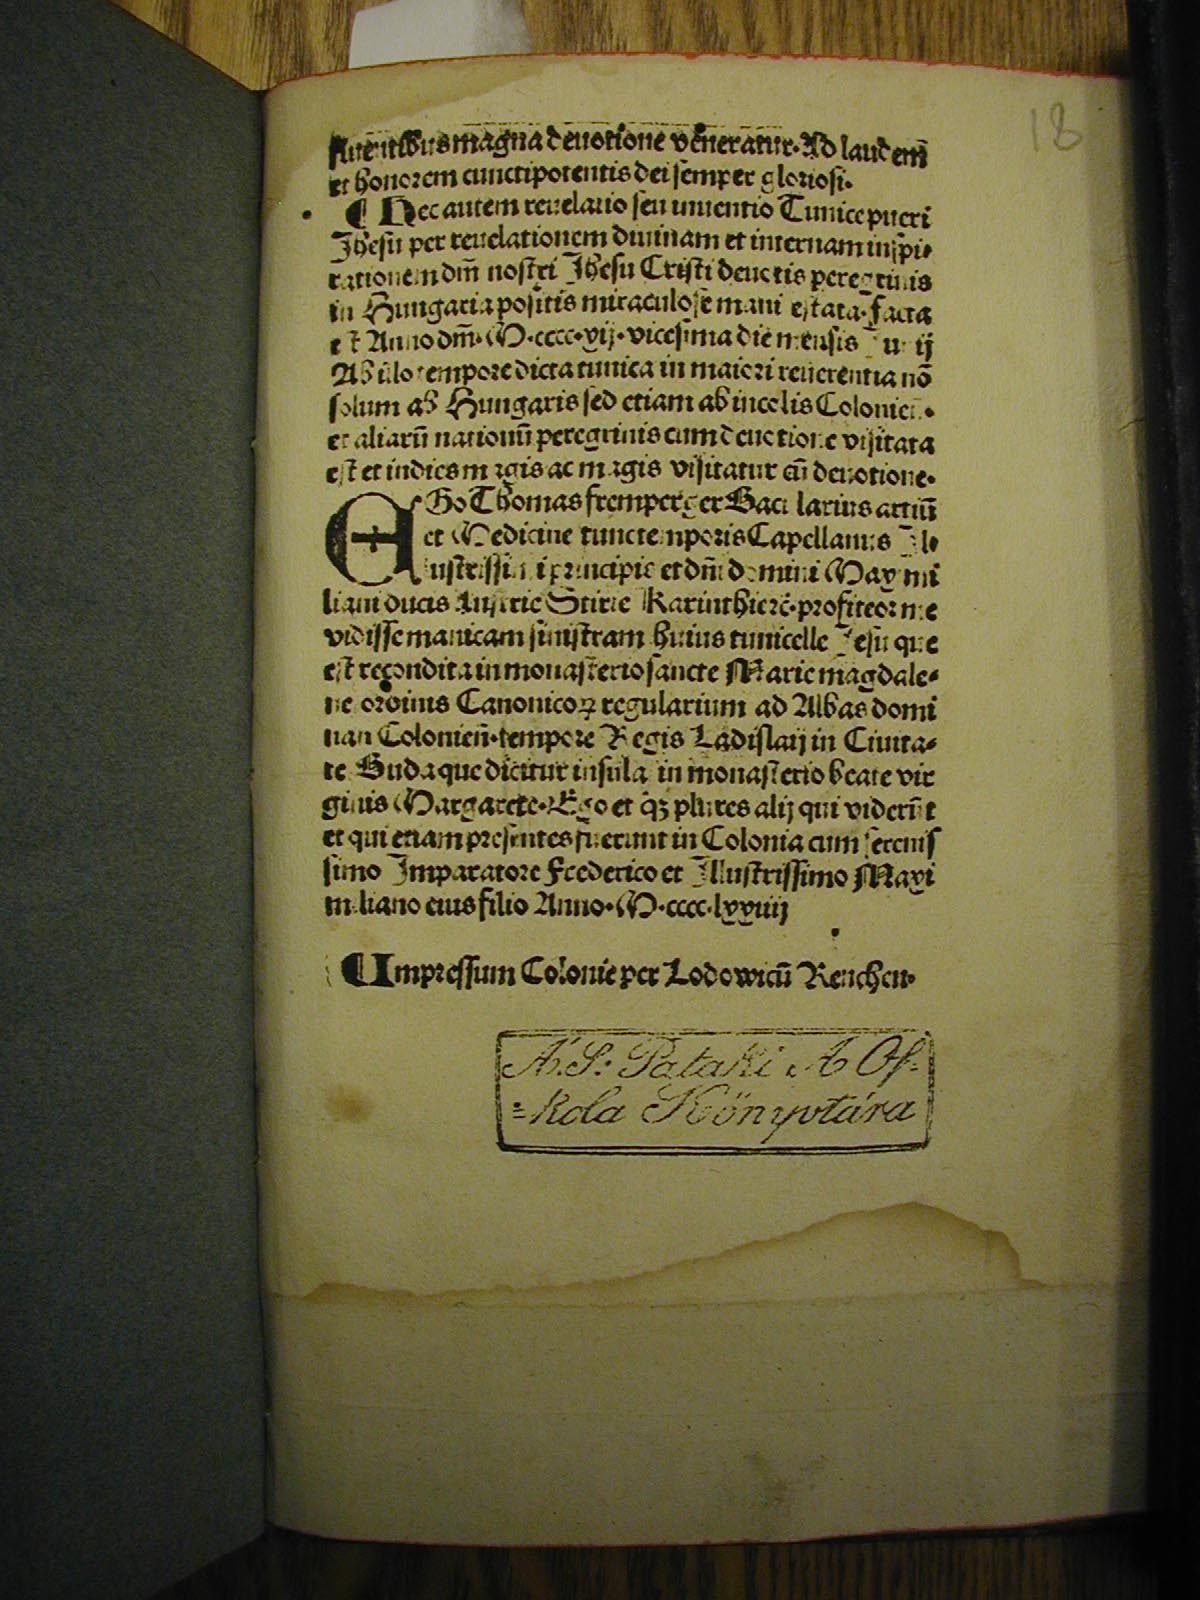 18
magna deuotione veneratur. Ad laudem̄
et honorem cunctipotentis dei semper gloriosi.
¶ Hec autem reuelatio seu inuentio Tunice pueri
Jhesu per reuelationem diuinam et internam inspi-
rationem dm̄ nostri Jhesu Cristi deuotis peregrinis
in Hungaria positis miraculose mani estata. facta
est Anno dm̄. M.cccc.xij. vicesima die mensis
Ab illo tempore dicta tunica in maiori reuerentia nō
solum ab Hungaris sed etiam ab incolis
et aliarū nationū peregrinis cum deuotione visitata
est et indies magis ac magis visitatur cū deuotione.
EGo Thomas fremperger Baccalarius artiū
et Medicine tunc temporis Capellanus Il-
lustrissimi principis et dn̄i domini Maximi
liani ducis Austrie Stirie Karinthie rc̄. profiteor me
vidisse manicam sinistram huius tunicelle Jesu que
est recondita in monasterio sancte Marie magdale-
ne ordinis Canonicoꝝ regularium ad Albas domi
nan Colonien̄. tempore Regis Ladislaij in Ciuita-
te Buda que dicitur insula in monasterio beate vir
ginis Margarete. Ego et qꝫ plures alij qui viderūt
et qui etiam presentes fuerunt in Colonia cum serenis
simo Imparatore Frederico et Illustrissimo Maxi
miliano eius filio Anno. M.cccc.lxxiiij
¶ Impressum Colonie per Lodowicū Renchen.
A' S: Pataki A Os-
=kola Könyvtára